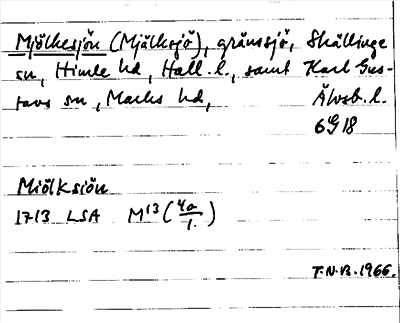 Mjölkesjön (Mjälksjö), gränssjö, Skällinge
sn, Himle hd, Hall. l., samt Karl Gus-
tavs sn, Marks hd, Älvsb. l.
6G18
Miölksiön
1713 LSA M13 (4a/1.)
T.N.B. 1966.